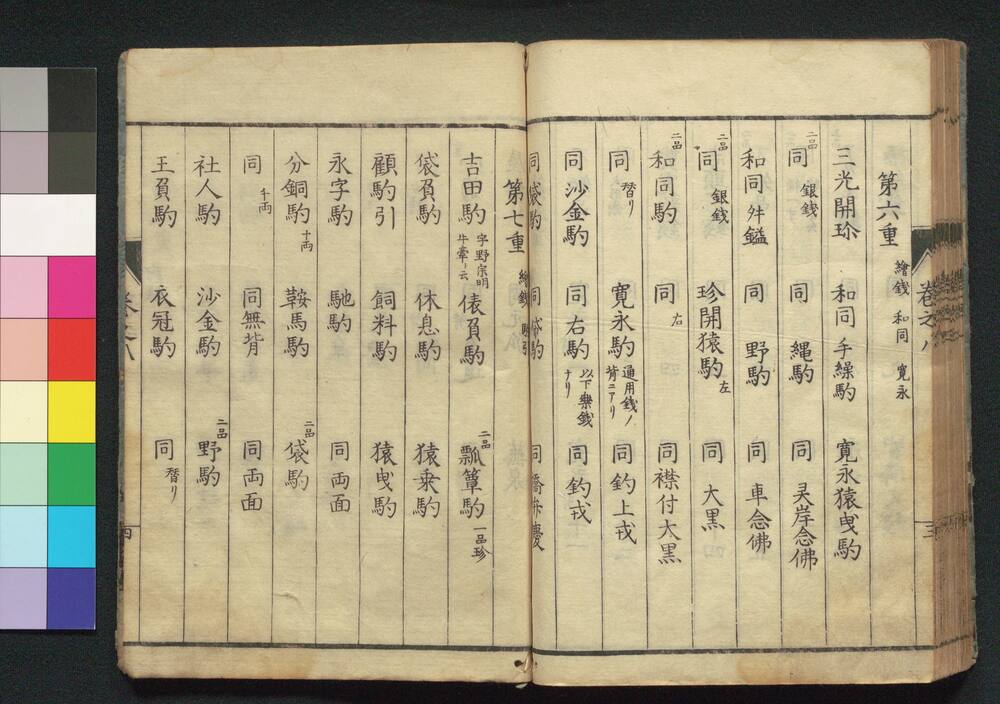 第六重 繪錢 和同 寛永
三光開珎 和同手繰駒 寛永猿曵駒
二品 同 銀錢 同 縄駒 同 灵岸念佛
和同舛鎰 同 野駒 同 車念佛
二品 同 銀錢 珍開猿駒 左 同 大黒
二品 和同駒 同 右 同 襟付大黒
同 替り 寛永駒 通用錢ノ背ニアリ 同 釣上戎
同 沙金駒 同 右駒 以下樂錢ナリ 同 釣戎
同 袋駒 同 帒駒 同
第七重 繪錢 駒引
吉田駒 字野宗明牛牽ト云 俵負駒 二品 瓢箪駒 一品珍
袋負駒 休息駒 猿乗駒
顧駒引 飼料駒 猿曵駒
永字駒 馳駒 同 両面
分銅駒 十両 鞍馬駒 二品 袋駒
同 千両 同 無背 同 両面
社人駒 沙金駒 二品 野駒
王負駒 衣冠駒 同 替り
卷之八
三
四